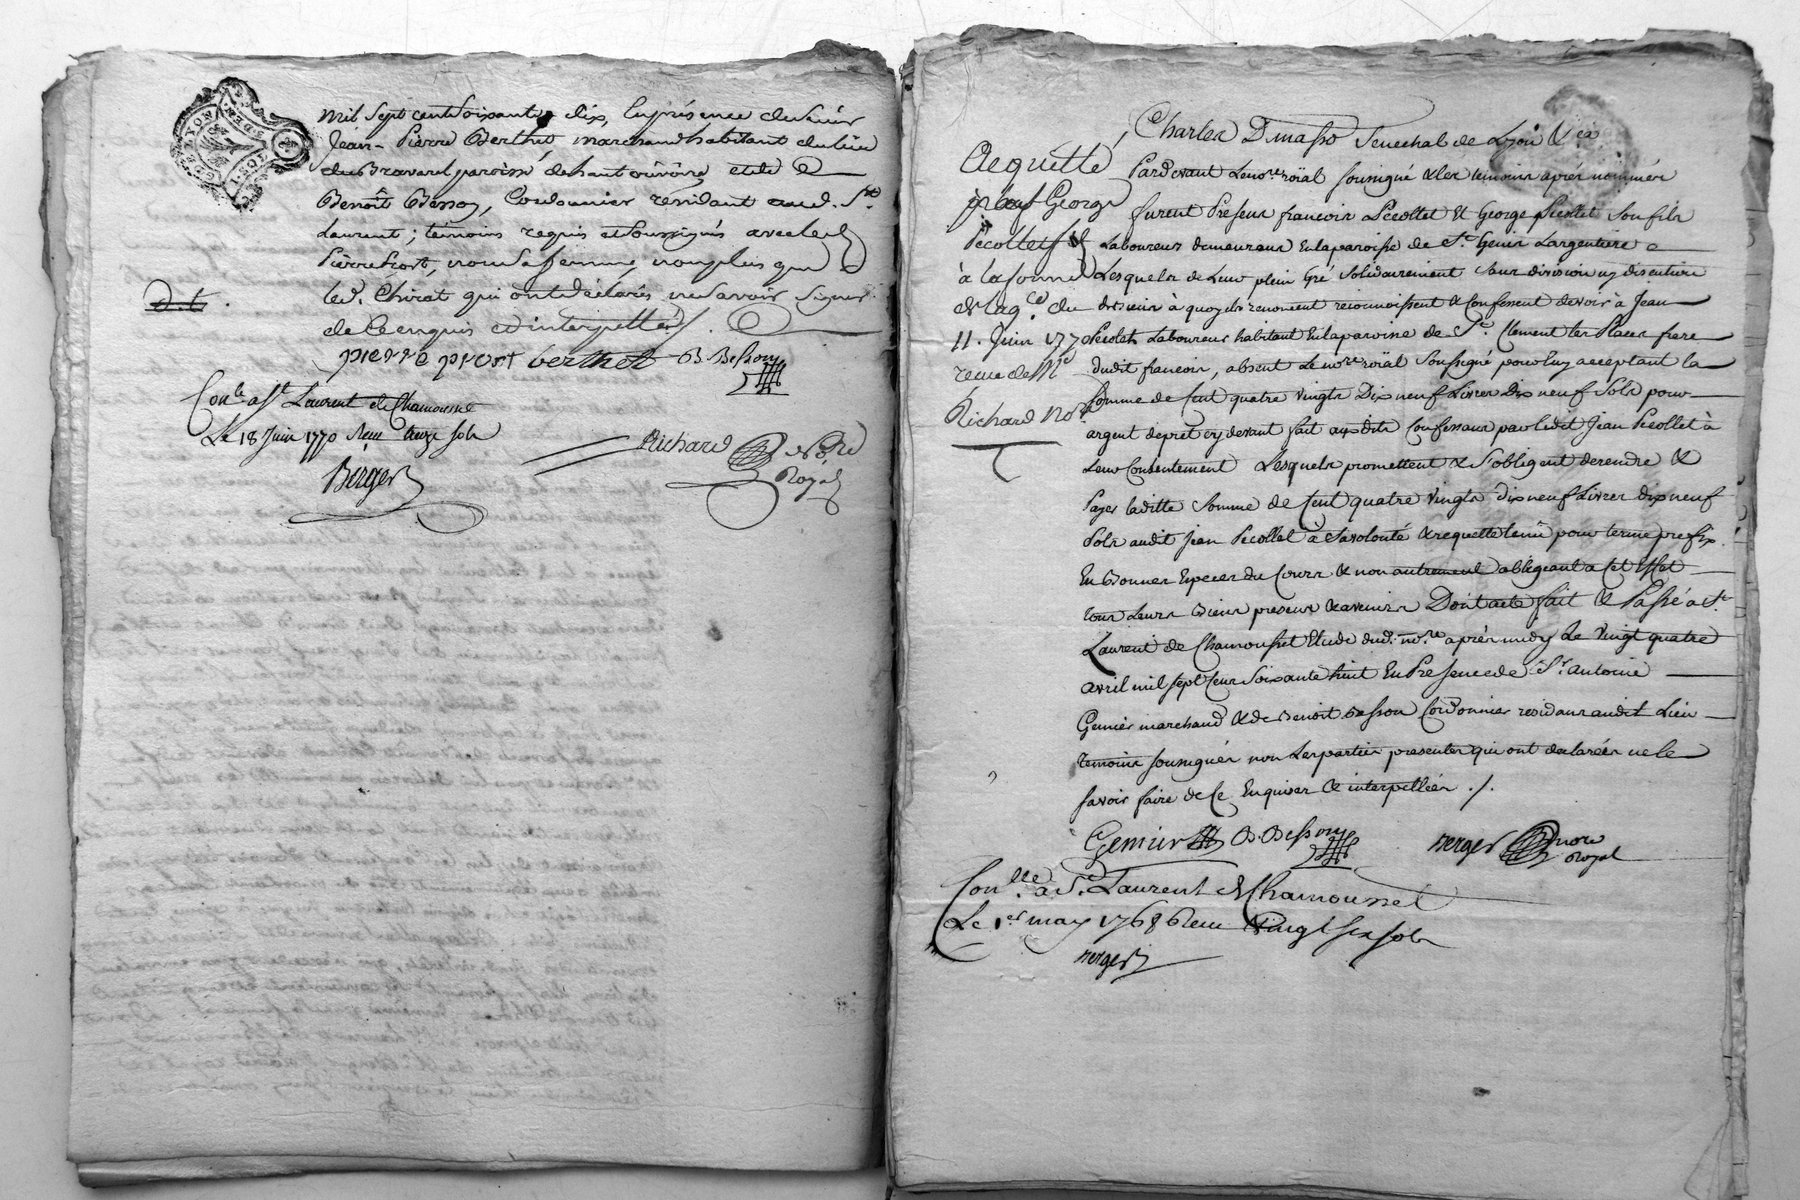 mil sept cent soixante dix, en présence du sieur
Jean-Pierre Berthet marchand habitant du lieu
du Bravard paroisse de haut rivoire et de
Benoît Besson, Cordonnier residant aud. St.
Laurent; temoins requis et soussignés avec led.
Pierre Piort, non sa femme, non plus que
led. Chirat qui ont déclarés ne savoir signer
de ce enquis et interpellés.
d.t.
pierre piort berthet B. Besson
Conlé a St Laurent de Chamousset
Le 18 Juin 1770 Reçu treize sols
Berger
Richard Nore
Royal
GEN LYON
Charles Dmasso Senechal de Lyon &ca
Pardevant le nore roïal soussigné & les temoins après nommés
furent presens francois Pecollet & George Pecollet son fils
Laboureurs demeurans en la paroisse de St. Genis Largentiere
Lesquels de leur plein gré solidairement sans division ny discution
de biens à quoy ils renoncent reconnoissent & confessent devoir à Jean
Pecolet Laboureur habitant en la paroisse de St. Clement les Places frere
dudit francois, absent le nore roïal soussigné pour luy acceptant la
somme de Cent quatre vingts Dix neuf Livres Dix neuf Sols pour
argent de pret cy devant fait auxdits Confessans par ledit Jean Pecollet à
leur Contentement Lesquels promettent & s'obligent de rendre &
Payer laditte somme de Cent quatre vingts dix neuf Livres dix neuf
Sols audit Jean Pecollet à sa volonté & requette tenü pour terme prefix.
En Bonnes Especes du Cours & non autrement obligeant a Cet Effet
tous leurs Biens presens & avenirs Dont acte fait & Passé a St.
Laurent de Chamousset Etude dud. nore après midy Le vingt quatre
avril mil sept Cens Soixante huit En Presence de Sr. antoine
Gemier marchand & de Benoit Besson Cordonnier residans audit Lieu
temoins soussignés non les parties presentes qui ont declarées ne le
savoir faire de Ce Enquises & interpellées ./.
Acquitté
par George
Pecollet
à la forme
de laq.ce du
11. Juin 1770
recue de Me
Richard Nore
Gemier B. Besson Berger nore
Royal
Conlle. a St. Laurent de Chamousset
Le 1er may 1768 Recu Vingt six sols
Berger